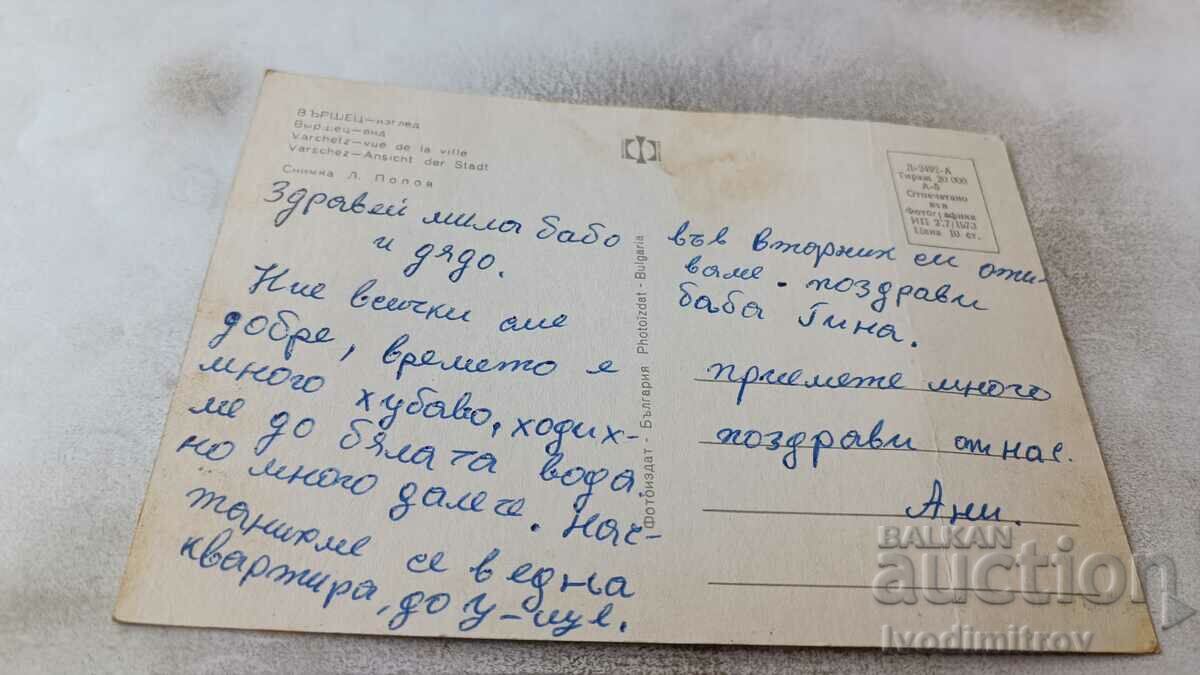 ВЪРШЕЦ—изглед
Вършец—вид
Varchetz—vue de la ville
Varschez—Ansicht der Stadt
Снимка Л. Попов
Здравей мила бабо
и дядо.
Ние всички сме
добре, времето е
много хубаво, ходих-
ме до бялата вода,
но много далече. Нас-
танихме се в една
квартира, до у-ще.
Фотоиздат - България Photoizdat - Bulgaria
Д-2492-А
Тираж 20 000
А-5
Отпечатано
във
Фотографика
ИП 2.7/1573
Цена 10 ст.
във вторник си оти-
ваме. поздрави
баба Гина.
приемете много
поздрави от нас.
Ани.
BALKAN
auction
Ivodimitrov